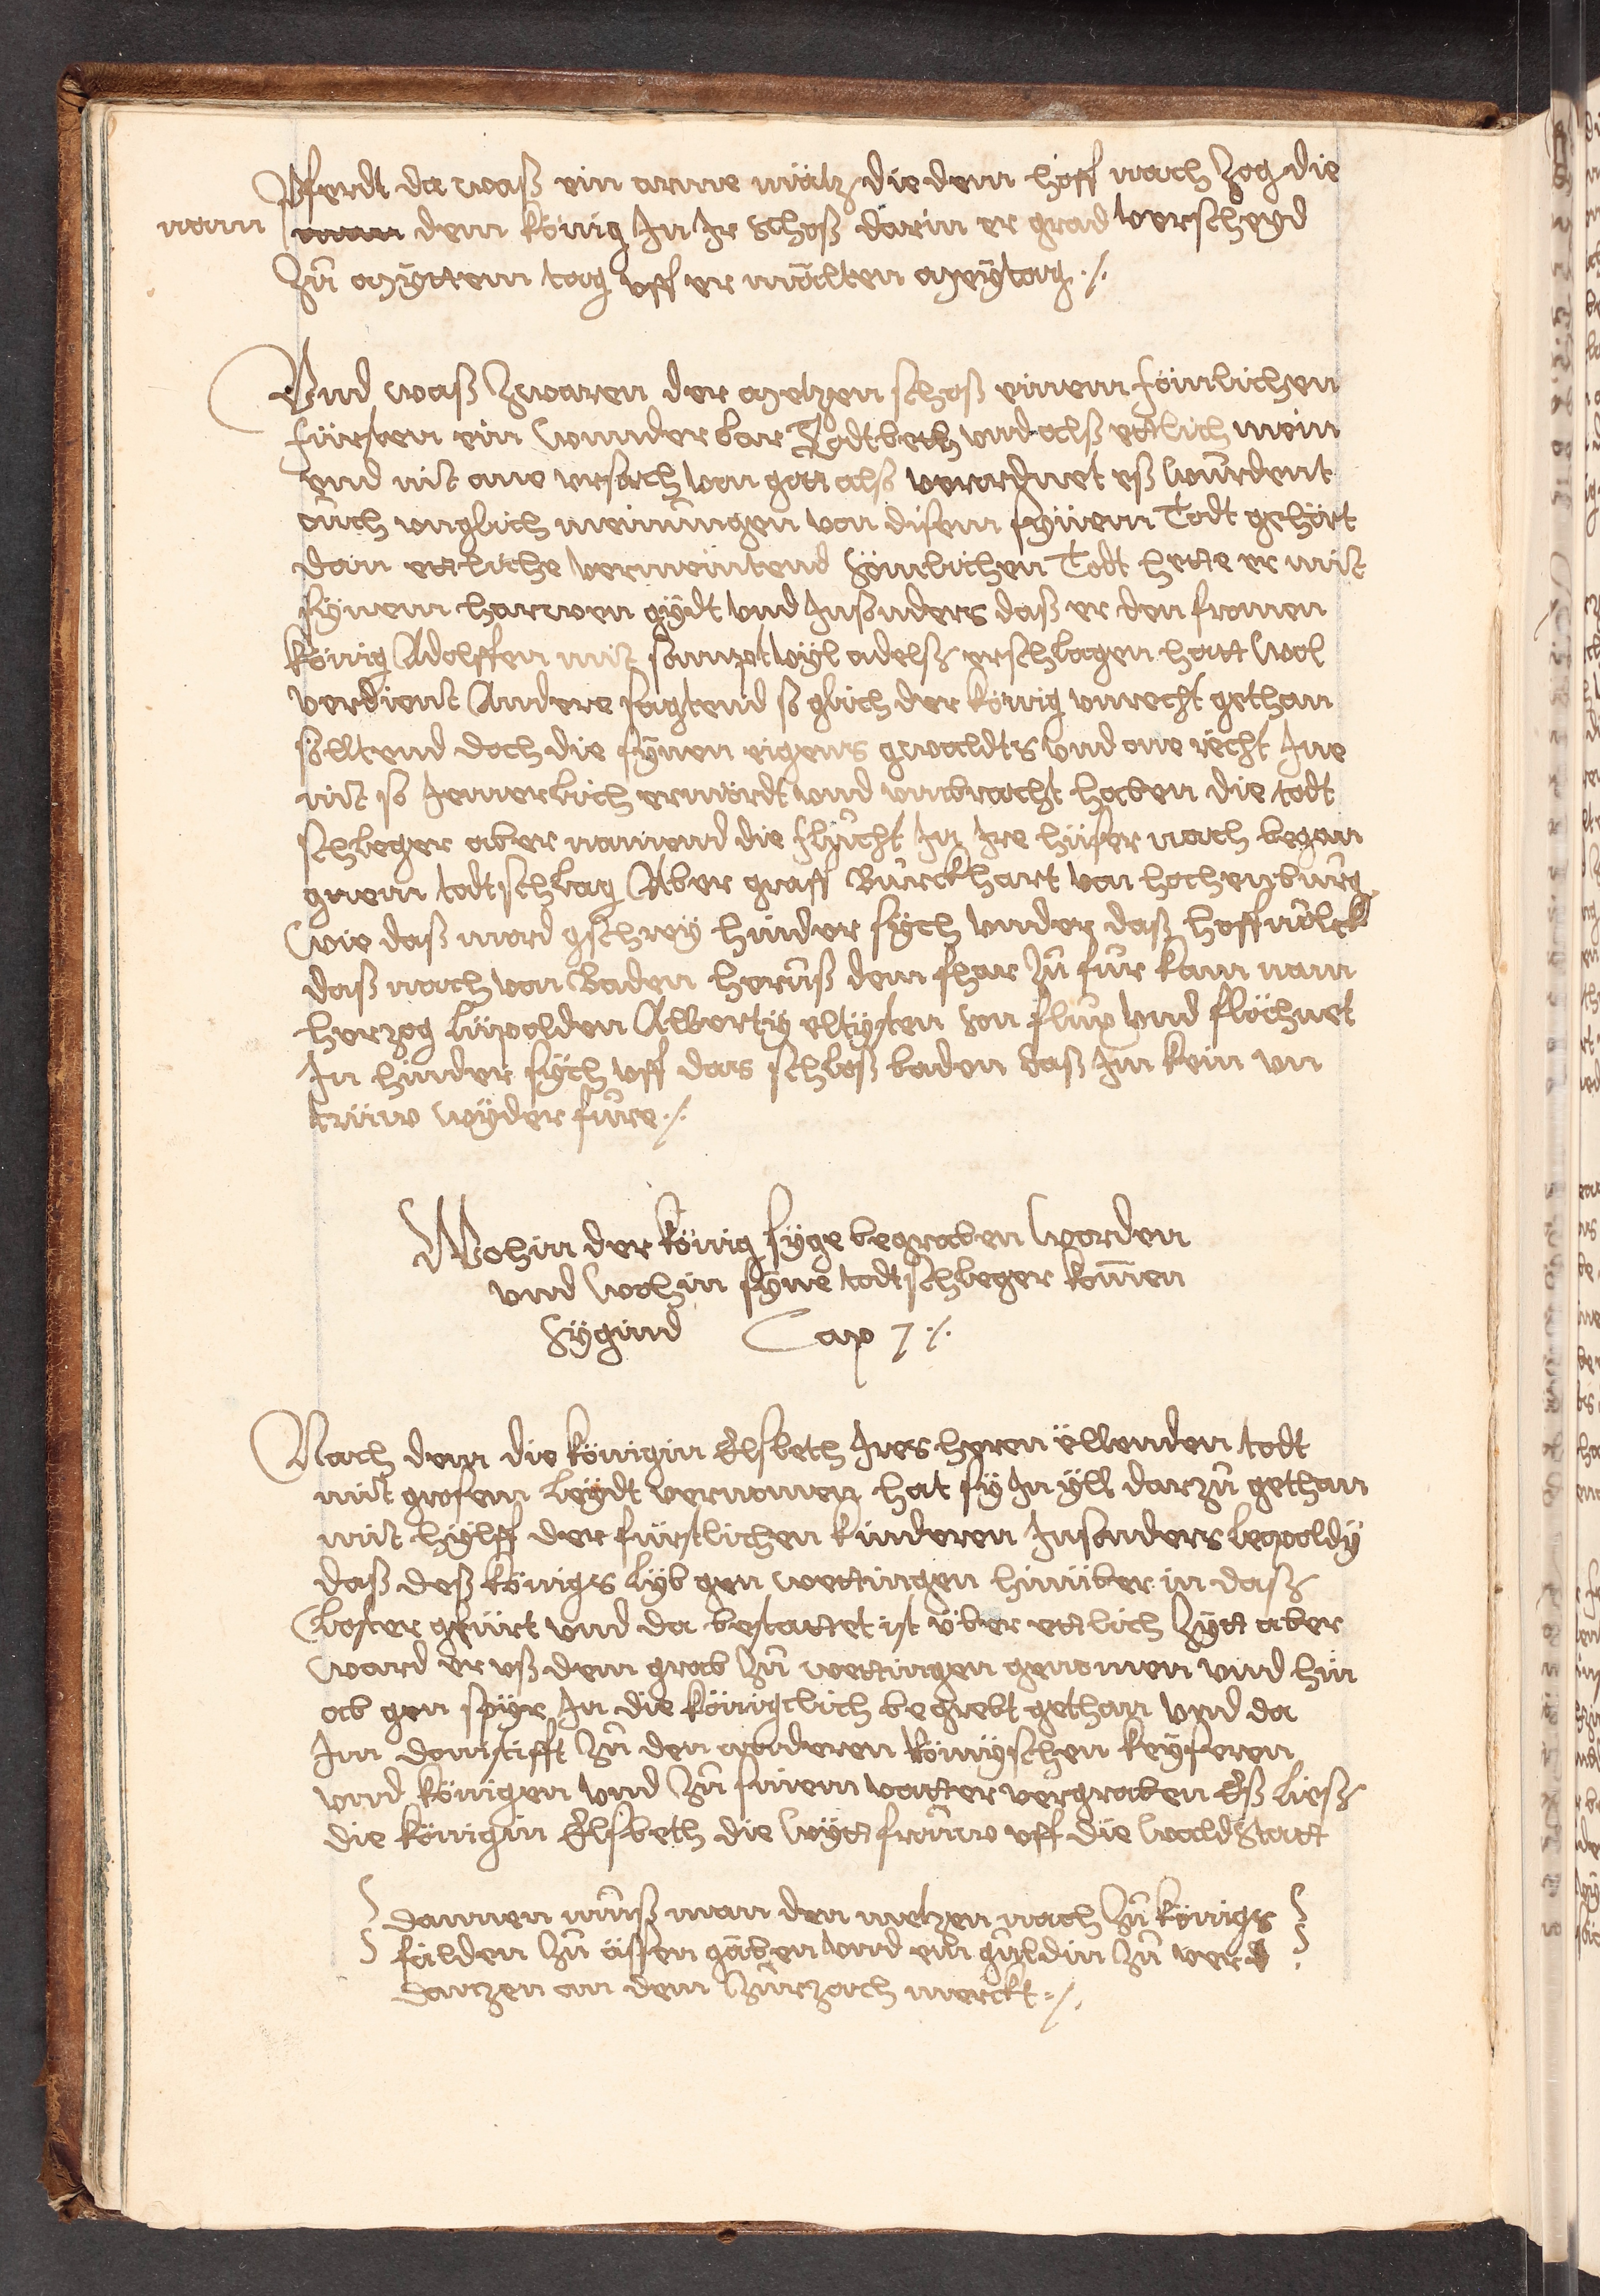 pferdt da waß ein arme mätz die dem hoff nach zog die
nam dem könig In Ir schoß darin er grad verscheyd
zů myttem tag uff er mälten meytag ./.
Und waß zwaren der metzen schoß einem sömlichen
fürsten ein wunderbar Todtbeth vnd alß ettlich mein
end nit one ursach von gott also verordnet eß wurdent
ouch unglich meinungen von disem synem Todt gehört
dan ettliche vermeintend sömlichen Todt hette er mit
synem harwen gydt und Insonders daß er den fromen
könig Adolffen mit sampt vyl adelß erschlagen hatt wol
verdient Andere sagtend so glich der könig unrecht gethan
solltend doch die synen eigens gwaldts und one recht Ine
nit so Jemerlich ermördt und umbracht haben die todt
schleger aber namend die flucht In Ire hüser nach began
gnem todtschlag Aber graff Burckhart von hochenburg
wie daß mord gschrey hinder sych under daß hoffvolck
daß nach von Baden heruß dem fhar zů fůr kam nam
herzog lüpolden Alberty eltysten son flux und flöchnet
In hinder sych uff das schloß baden daß Im kein un
trüw wyder füre ./.
Wohin der könig syge begraben worden
und wohin syne todtschleger komen
sygind Cap 7 ./.
Nach dem die königin Elsbeth Ires heren ellenden todt
mit grosem leydt vernomen hat sy In yll darzů gethan
mit hylff der fürstlichen kinderen Insonders leopoldy
daß deß königs lyb gen wettingen hinüber in daß
Closter gfürt und da bestattet ist über ettlich zytt aber
ward er uß dem grab zů wettingen genomen und hin
ab gen spyr In die königclich begrebt gethan und da
Im domstifft zů den anderen Römyschen keyseren
und königen und zů sinem vatter vergraben Eß ließ
die königin Elsbeth die wyttfrouw uff die waldstatt
dannen můß man den metzen nach zů königs
fälden zů ässen gäben und ein guldin zů ver
dantzen an dem Zurzach merckt ./.